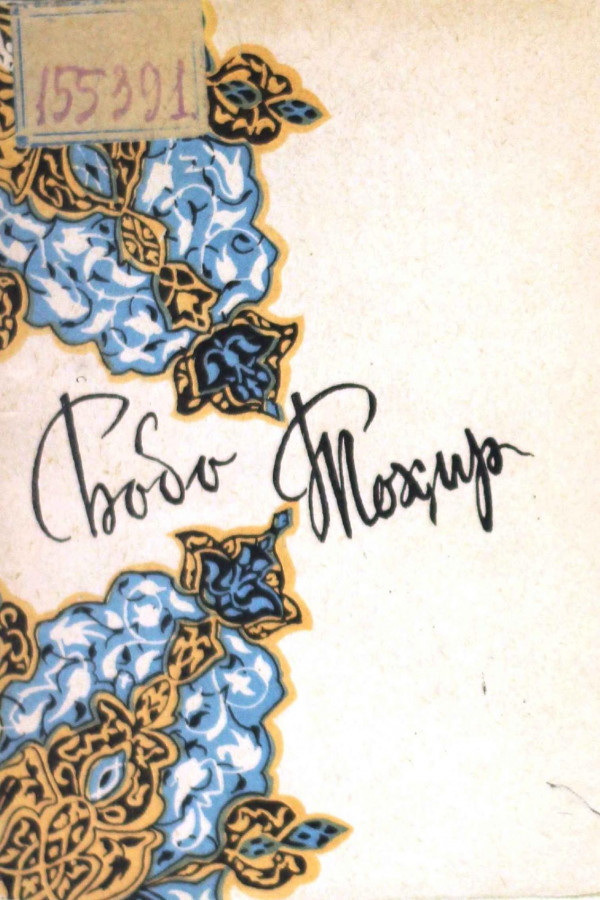 155391
Бобо Тоҳир